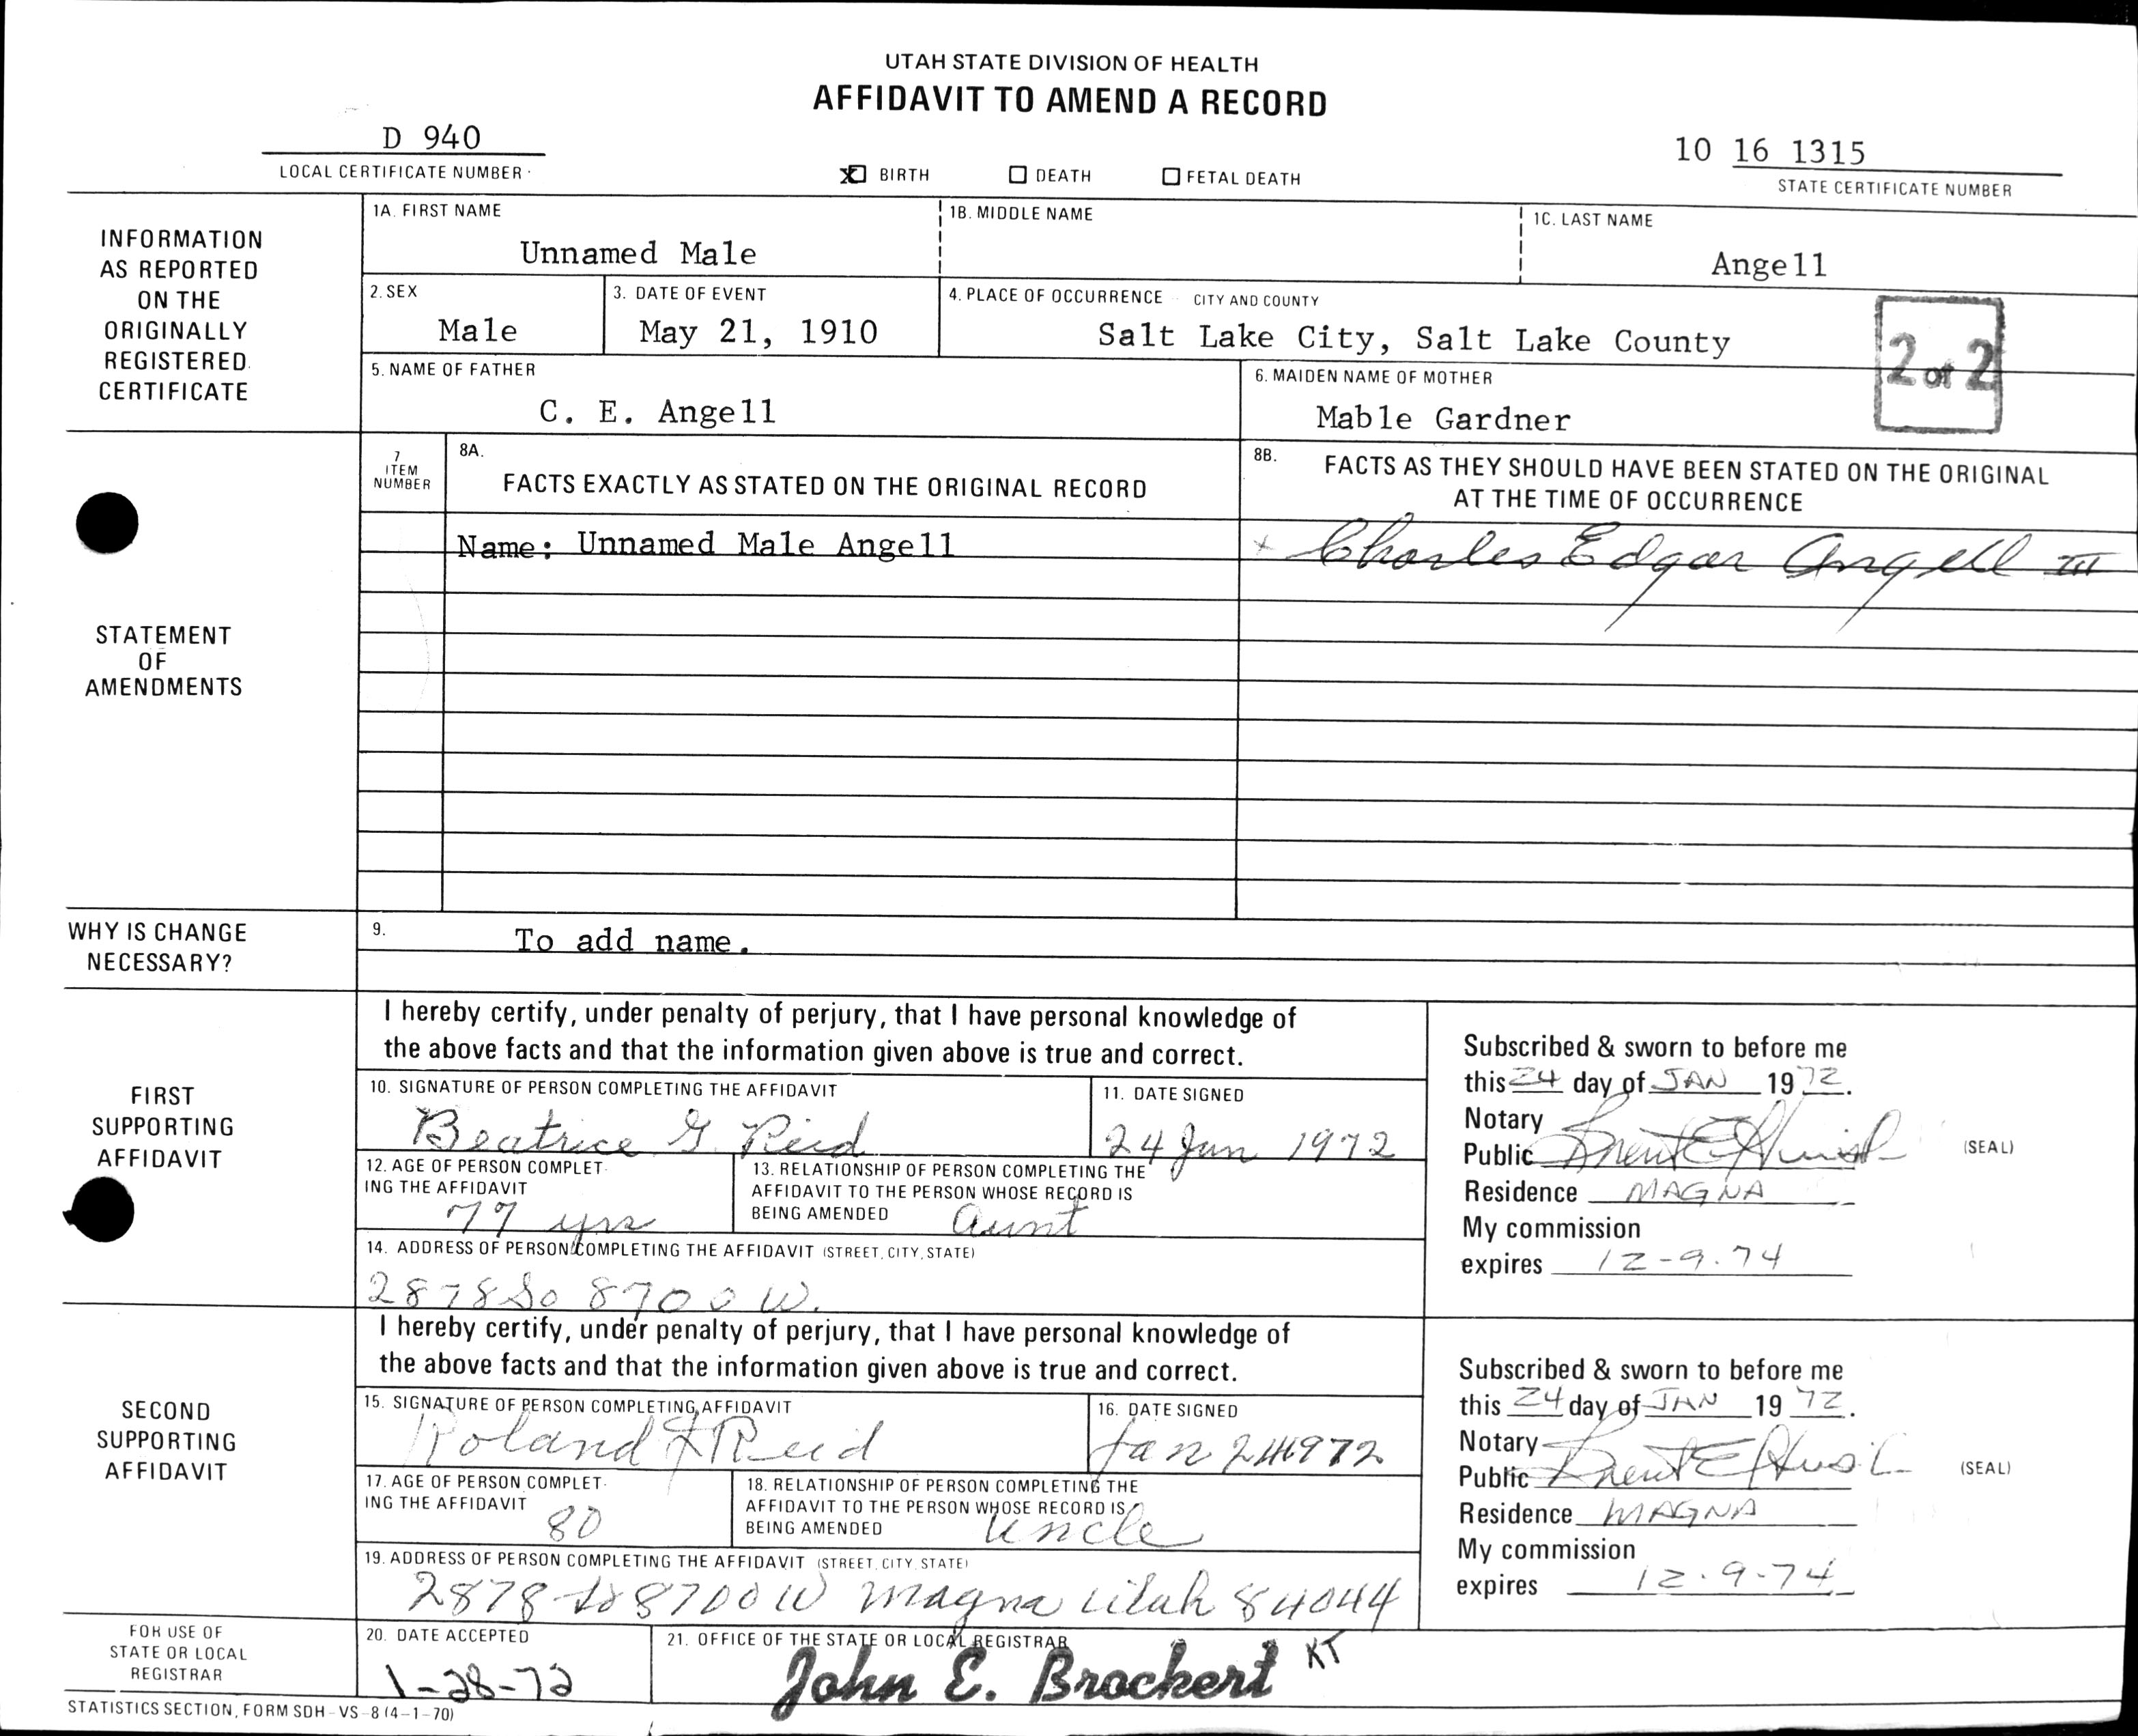 UTAH STATE DIVISION OF HEALTH
AFFIDAVIT TO AMEND A RECORD
D 940
LOCAL CERTIFICATE NUMBER
X BIRTH DEATH FETAL DEATH
10 16 1315
STATE CERTIFICATE NUMBER
INFORMATION
AS REPORTED
ON THE
ORIGINALLY
REGISTERED
CERTIFICATE
1A. FIRST NAME
Unnamed Male
1B. MIDDLE NAME
1C. LAST NAME
Angell
2. SEX
Male
3. DATE OF EVENT
May 21, 1910
4. PLACE OF OCCURRENCE CITY AND COUNTY
Salt Lake City, Salt Lake County
2 of 2
5. NAME OF FATHER
C. E. Angell
6. MAIDEN NAME OF MOTHER
Mable Gardner
STATEMENT
OF
AMENDMENTS
7
ITEM
NUMBER
8A.
FACTS EXACTLY AS STATED ON THE ORIGINAL RECORD
8B.
FACTS AS THEY SHOULD HAVE BEEN STATED ON THE ORIGINAL
AT THE TIME OF OCCURRENCE
Name: Unnamed Male Angell
x Charles Edgar Angell III
WHY IS CHANGE
NECESSARY?
9.
To add name.
FIRST
SUPPORTING
AFFIDAVIT
I hereby certify, under penalty of perjury, that I have personal knowledge of
the above facts and that the information given above is true and correct.
10. SIGNATURE OF PERSON COMPLETING THE AFFIDAVIT
Beatrice G. Reid
11. DATE SIGNED
24 Jan 1972
12. AGE OF PERSON COMPLET-
ING THE AFFIDAVIT
77 yrs
13. RELATIONSHIP OF PERSON COMPLETING THE
AFFIDAVIT TO THE PERSON WHOSE RECORD IS
BEING AMENDED
Aunt
14. ADDRESS OF PERSON COMPLETING THE AFFIDAVIT (STREET, CITY, STATE)
2878 So 8700 W.
Subscribed & sworn to before me
this 24 day of JAN 1972.
Notary
Public
(SEAL)
Residence MAGNA
My commission
expires 12-9.74
SECOND
SUPPORTING
AFFIDAVIT
I hereby certify, under penalty of perjury, that I have personal knowledge of
the above facts and that the information given above is true and correct.
15. SIGNATURE OF PERSON COMPLETING AFFIDAVIT
Roland Reid
16. DATE SIGNED
Jan 24 1972
17. AGE OF PERSON COMPLET-
ING THE AFFIDAVIT
80
18. RELATIONSHIP OF PERSON COMPLETING THE
AFFIDAVIT TO THE PERSON WHOSE RECORD IS
BEING AMENDED
Uncle
19. ADDRESS OF PERSON COMPLETING THE AFFIDAVIT (STREET, CITY, STATE)
2878 So 8700 W Magna Utah 84044
Subscribed & sworn to before me
this 24 day of JAN 1972.
Notary
Public
(SEAL)
Residence MAGNA
My commission
expires 12.9-74
FOR USE OF
STATE OR LOCAL
REGISTRAR
20. DATE ACCEPTED
1-28-72
21. OFFICE OF THE STATE OR LOCAL REGISTRAR
John E. Brockert KT
STATISTICS SECTION, FORM SDH-VS-8 (4-1-70)